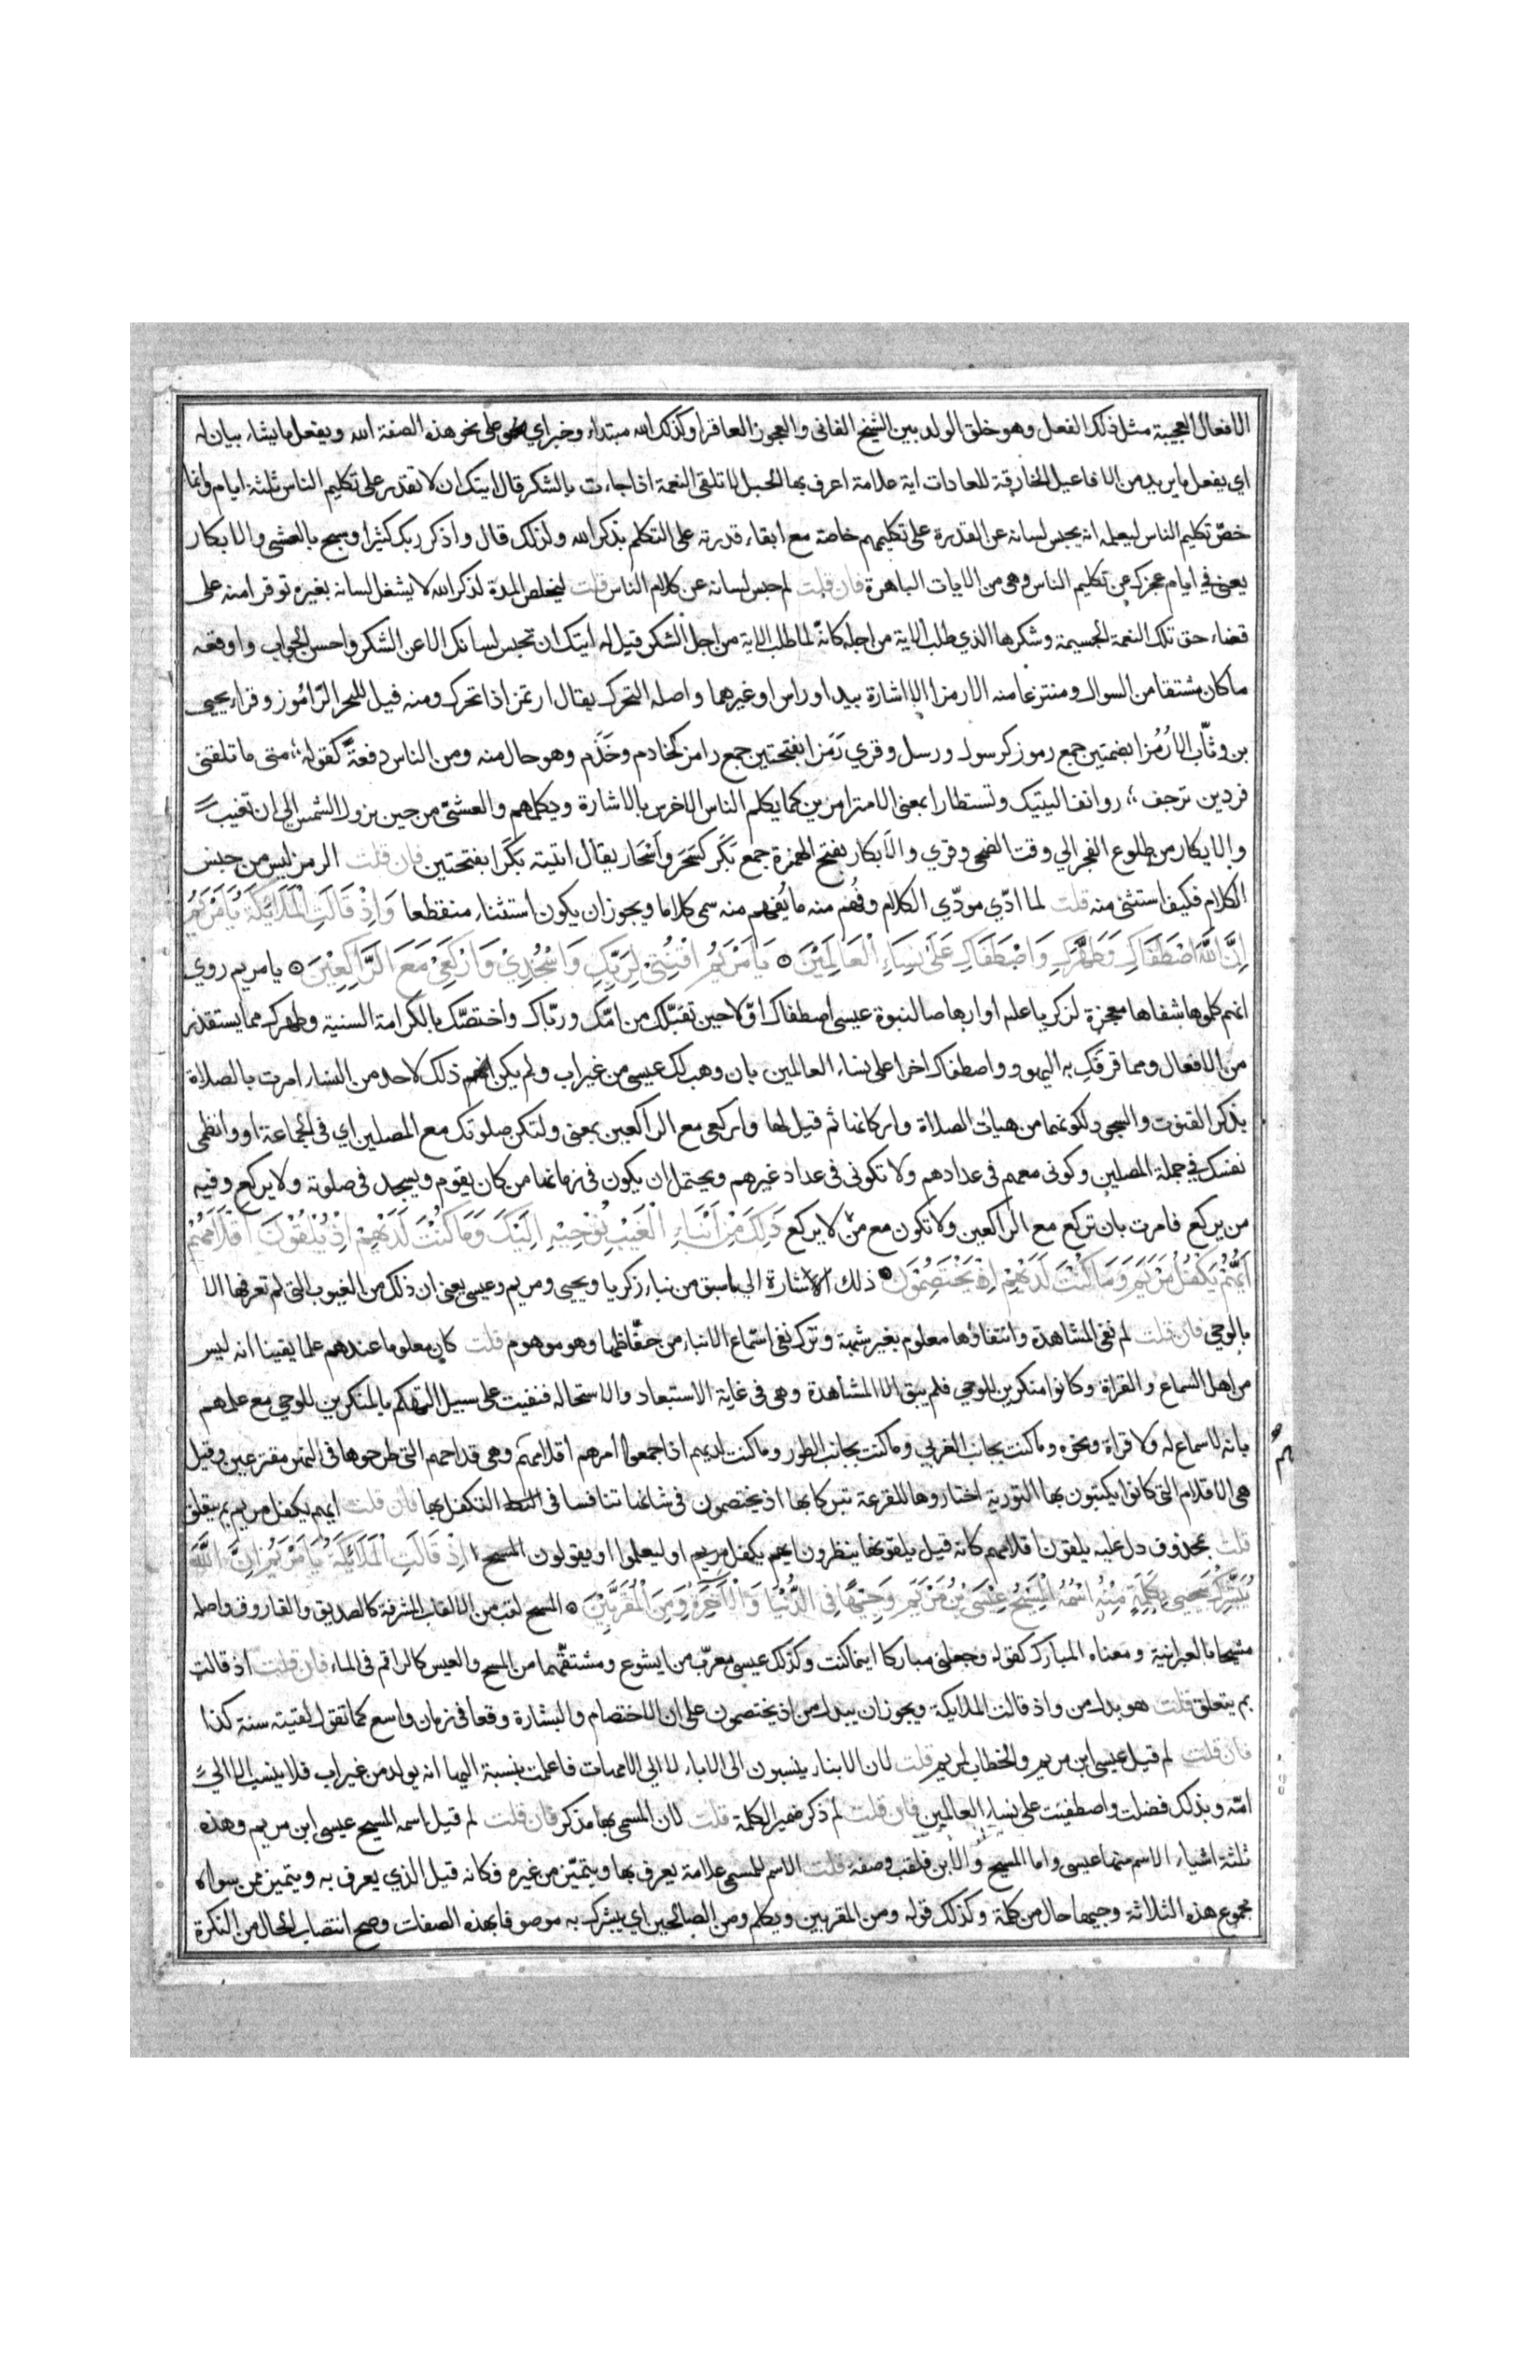 الافعال العجيبة مثل ذلك الفعل وهو خلق الولد بين الشيخ الفانى والعجوز العاقر او كذلك الله مبتداء وخبر اي على نحو هذه الصفة الله ويفعل ما يشاء بيان له
اي يفعل ما يريد من الافاعيل الخارقة للعادات اية علامة اعرف بها الحبل لاتلقى النعمة اذا جاءت بالشكر قال ايتك ان لا تقدر على تكليم الناس ثلثة ايام وانما
خصّ تكليم الناس ليعلمه انه يحبس لسانه عن القدرة على تكليمهم خاصة مع ابقاء قدرته على التكلم بذكر الله ولذلك قال واذكر ربك كثيرا وسبح بالعشى والابكار
يعنى في ايام عجزك عن تكليم الناس وهى من الايات الباهرة فان قلت لم حبس لسانه عن كلام الناس قلت ليخلص المدة لذكر الله لا يشغل لسانه بغيره توفرا منه على
قضاء حق تلك النعمة الجسيمة وشكرها الذي طلب الاية من اجله كانّه لما طلب الاية من اجل الشكر قيل له ايتك ان تحبس لسانك الا عن الشكر واحسن الجواب واوقعه
ما كان مشتقا من السوال ومنتزعا منه الا رمزا الا اشارة بيد او راس او غيرهما واصله التحرك يقال ارتمز اذا تحرك ومنه قيل للبحر الرّاموز وقراء يحيى
بن وثّاب الا رُمُزا بضمتين جمع رموز كرسول ورسل وقري رَمَزا بفتحتين جمع رامز كخادم وخَدَم وهو حال منه ومن الناس دفعةً كقوله متى ما تلقنى
فردين ترجف روانف اليتيك وتستطارا بمعنى الا مترامزين كما يكلم الناس الاخرس بالاشارة ويكلمهم والعشىّ من حين يزول الشمس الي ان تغيب
والابكار من طلوع الفجر الي وقت الضحى وقري والأبكار بفتح الهمزة جمع بَكَر كسَحَر وأسْحار يقال اتيته بَكَرا بفتحتين فان قلت الرمز ليس من جنس
الكلام فكيف استثنى منه قلت لما ادّي مودّي الكلام وفُهم منه ما يُفهم منه سمى كلاما ويجوز ان يكون استثناء منقطعا وَاِذْ قَالَتِ الْمَلَائِكَةُ يَامَرْيَمُ
اِنَّ اللَّهَ اصْطَفَاكِ وَطَهَّرَكِ وَاصْطَفَاكِ عَلَى نِسَاءِ الْعَالَمِيْنَ يَامَرْيَمُ اقْنُتِىْ لِرَبِّكِ وَاسْجُدِيْ وَارْكَعِيْ مَعَ الرَّاكِعِيْنَ يا مريم روي
انهم كلموها شفاها معجزة لزكريا عليه او ارهاصا لنبوة عيسى اصطفاك اوّلا حين تقبّلك من امّك وربّاك واختصّك بالكرامة السنية وطهرك مما يستقذر
من الافعال ومما قرفكِ به اليهود واصطفاك اخرا على نساء العالمين بان وهب لك عيسى من غير اب ولم يكن ذلك لاحد من النساء امرت بالصلاة
بذكر القنوت والسجود لكونهما من هيات الصلاة واركانها ثم قيل لها واركعى مع الراكعين بمعنى ولتكن صلوتك مع المصلين اي فى الجماعة او وانظمى
نفسك في جملة المصلين وكونى معهم فى عدادهم ولا تكونى فى عداد غيرهم ويحتمل ان يكون فى زمانها من كان يقوم ويسجد فى صلوته ولا يركع وفيه
من يركع فامرت بان تركع مع الراكعين ولا تكون مع من لا يركع ذَلِكَ مِنْ اَنْبَاءِ الْغَيْبِ نُوْحِيْهِ اِلَيْكَ وَمَا كُنْتَ لَدَيْهِمْ اِذْ يُلْقُوْنَ اَقْلَامَهُمْ
اَيُّهُمْ يَكْفُلُ مَرْيَمَ وَمَا كُنْتَ لَدَيْهِمْ اِذْ يَخْتَصِمُوْنَ ذلك الاشارة الى ما سبق من نباء زكريا ويحيى ومريم وعيسى يعنى ان ذلك من الغيوب التى لم تعرفها الا
بالوحي فان قلت لم نفى المشاهدة وانتفاؤها معلوم بغير شبهة وترك نفى استماع الانباء من حفّاظها وهو موهوم قلت كان معلوما عندهم علما يقينا انه ليس
من اهل السماع والقراة وكانوا منكرين للوحي فلم يبق الا المشاهدة وهى فى غاية الاستبعاد والاستحالة فنفيت على سبيل التهكم بالمنكرين للوحي مع علمهم
بانه لا سماع له ولا قراة ونحوه وما كنت بجانب الغربي وما كنت بجانب الطور وما كنت لديهم اذا جمعوا امرهم اقلامهم وهى قداحهم التى طرحوها فى النهر مقترعين وقيل
هى الاقلام التى كانوا يكتبون بها التورية اختاروها للقرعة تبركا بها اذ يختصمون فى شانها تنافسا فى التكفل بها فان قلت ايهم يكفل مريم بم يتعلق
قلت بمحذوف دل عليه يلقون اقلامهم كانه قيل يلقونها ينظرون ايهم يكفل مريم او ليعلموا او يقولون اِذْ قَالَتِ الْمَلَائِكَةُ يَامَرْيَمُ اِنَّ اللَّهَ
يُبَشِّرُكِ بِكَلِمَةٍ مِنْهُ اسْمُهُ الْمَسِيْحُ عِيْسَى بْنُ مَرْيَمَ وَجِيْهًا فِى الدُّنْيَا وَالْاَخِرَةِ وَمِنَ الْمُقَرَّبِيْنَ المسيح لقب من الالقاب المشرفة كالصديق والفاروق واصله
مشيحا بالعبرانية ومعناه المبارك كقوله وجعلنى مباركا اينما كنت وكذلك عيسى معرّب من ايشوع ومشتقهما من المسح والعيس كالراقم فى الماء فان قلت اذ قالت
بم يتعلق قلت هو بدل من واذ قالت الملايكة ويجوز ان يبدل من اذ يختصمون على ان الاختصام والبشارة وقعا فى زمان واسع كما تقول لقيته سنة كذا
فان قلت لم قيل عيسى ابن مريم والخطاب لمريم قلت لان الابناء ينسبون الى الاباء لا الي الامهات فاعلمت بنسبته اليها انه يولد من غير اب فلا ينسب الا الي
امّه وبذلك فضلت واصطفيت على نساء العالمين فان قلت لم ذكر ضمير الكلمة قلت لان المسمى بها مذكر فان قلت لم قيل اسمه المسيح عيسى ابن مريم وهذه
ثلثة اشياء الاسم منها عيسى واما المسيح والابن فلقب وصفة قلت الاسم للمسمى علامة يعرف بها ويتميّز من غيره فكانه قيل الذي يعرف به ويتميز ممن سواه
مجموع هذه الثلاثة وجيها حال من كلمة وكذلك قوله ومن المقربين ويكلم ومن الصالحين اي يبشرك به موصوفا بهذه الصفات وصح انتصاب الحال من النكرة